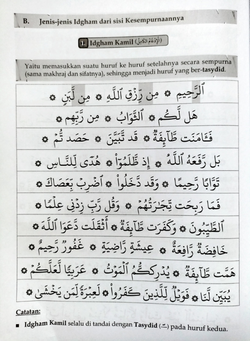 B. Jenis-jenis Idgham dari sisi Kesempurnaannya
1. Idgham Kamil (إِدْغَامٌ كَامِلٌ)
Yaitu memasukkan suatu huruf ke huruf setelahnya secara sempurna
(sama makhraj dan sifatnya), sehingga menjadi huruf yang ber-tasydid.
ٱلرَّحِيمِ * مِن رِّزْقِ ٱللَّهِ * مِن لَّبَنٍ
هَل لَّكُم * ٱلثَّوَابُ * مِن رَّبِّهِمْ
فَـَٔامَنَت طَّآئِفَةٌ * قَد تَّبَيَّنَ * حَصَدتُّمْ
بَل رَّفَعَهُ ٱللَّهُ * إِذ ظَّلَمُوٓا۟ * هُدًى لِّلنَّاسِ
تَوَّابًا رَّحِيمًا * وَقَد دَّخَلُوا۟ * ٱضْرِب بِّعَصَاكَ
فَمَا رَبِحَت تِّجَٰرَتُهُمْ * وَقُل رَّبِّ زِدْنِى عِلْمًا
ٱلطَّيِّبُونَ * وَكَفَرَت طَّآئِفَةٌ * أَثْقَلَت دَّعَوَا ٱللَّهَ
خَافِضَةٌ رَّافِعَةٌ * عِيشَةٍ رَّاضِيَةٍ * غَفُورٌ رَّحِيمٌ
هَمَّت طَّآئِفَةٌ * يُدْرِككُّمُ ٱلْمَوْتُ * عَرَبِيًّا لَّعَلَّكُمْ
يُبَيِّن لَّنَا * فَوَيْلٌ لِّلَّذِينَ كَفَرُوا۟ * لَعِبْرَةً لِّمَن يَخْشَىٰٓ
Catatan:
▪ Idgham Kamil selalu di tandai dengan Tasydid (ـّ) pada huruf kedua.